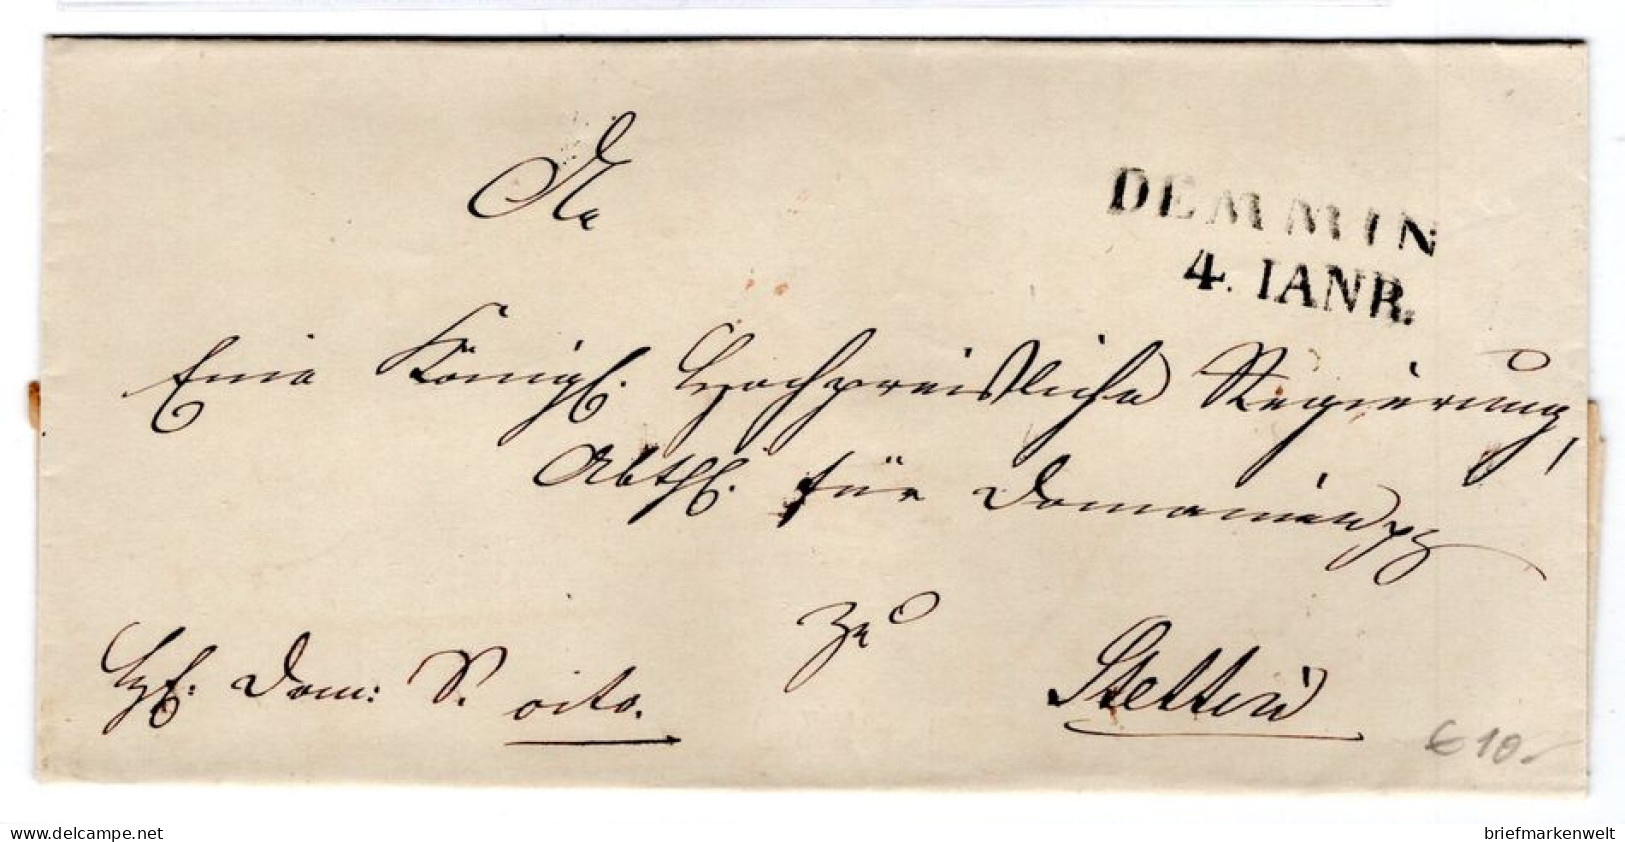 An
DEMMIN
4. IANR.
Eine Königl. Hochpreißliche Regierung,
Abthl. für Domainen pp
zu
Stettin
Hl. Dom: S. cito.
€ 10.-
delcampe.net
briefmarkenwelt